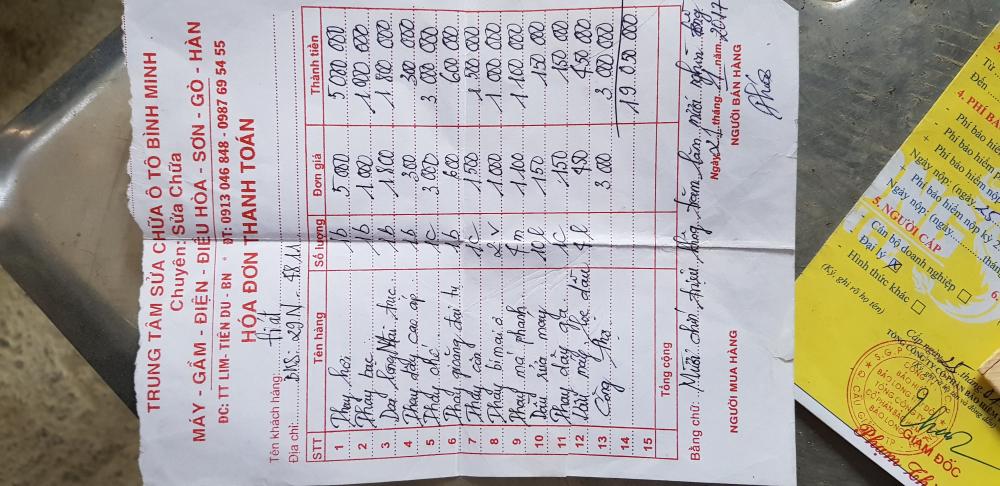 TRUNG TÂM SỬA CHỮA Ô TÔ BÌNH MINH
Chuyên: Sửa Chữa
MÁY - GẦM - ĐIỆN - ĐIỀU HÒA - SƠN - GÒ - HÀN
ĐC: TT LIM- TIÊN DU - BN * ĐT: 0913 046 848 - 0987 69 54 55
HÓA ĐƠN THANH TOÁN
Tên khách hàng: Fiat
Địa chỉ: BKS: 29N - 48.11
STT Tên hàng Số lượng Đơn giá Thành tiền
1 Thay hơi 1b 5000 5 000 000
2 Thay bạc 1b 1.000 1.000 000
3 1b 1800 1 800 000
4 Thay dây cao áp 1b 300 300 000
5 Thay chế 1c 3.000 3 000 000
6 Thay giăng đại tu 1b 600 600 000
7 Thay côn 1c 1500 1 500 000
8 Thay bi mai ơ 2v 1000 000
9 Thay má phanh 4m 1.100 1.100 000
10 Dầu rửa máy 10l 150 150 000
11 Thay dây ga 1c 150 150 000
12 Dầu máy lọc dầu 4l 450 450 000
13 Công thợ 3 000 3 000 000
14 19.050 000
15
Tổng cộng
Bằng chữ: Mười chín triệu không trăm năm mươi nghìn đồng
Ngày 24 tháng năm 2017
NGƯỜI MUA HÀNG NGƯỜI BÁN HÀNG
Từ
Đến
4. PHÍ BẢ
Phí bảo hiểm
Phí bảo hiểm
Ngày nộp: (ngày 25
Phí bảo hiểm nộp kỳ
Ngày nộp: (ngày
5. NGƯỜI CẤP
Cán bộ doanh nghiệp
Đại lý
Hình thức khác
(Ký, ghi rõ họ tên)
Cấp ngày 25 tháng
TỔNG CÔNG TY CỔ PHẦN BẢO HIỂM
GIÁM ĐỐC